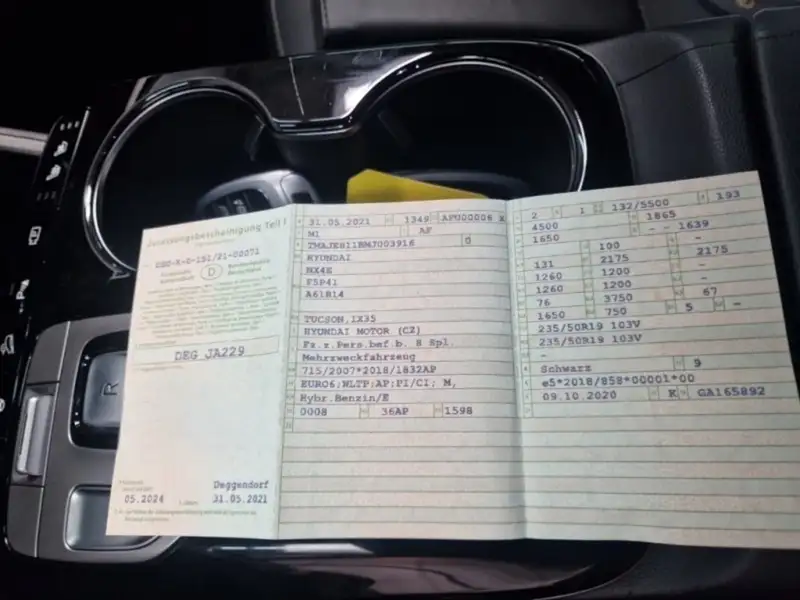 Zulassungsbescheinigung Teil I
D
DEG JA229
Deggendorf
05.2024
31.05.2021
31.05.2021 1349 APU00006
M1 AF
TMAJE811BMJ003916 0
HYUNDAI
NX4E
F5P41
A61B14
TUCSON,IX35
HYUNDAI MOTOR (CZ)
Fz.z.Pers.bef.b. 8 Spl.
Mehrzweckfahrzeug
715/2007*2018/1832AP
EURO6;WLTP;AP;PI/CI; M,
Hybr.Benzin/E
0008 36AP 1598
2 1 132/5500 193
4500 1865
1650 - - 1639
100 -
131 2175 2175
1260 1200 -
1260 1200 -
76 3750 67
1650 750 5 -
235/50R19 103V
235/50R19 103V
-
Schwarz 9
e5*2018/858*00001*00
09.10.2020 K GA165892
R